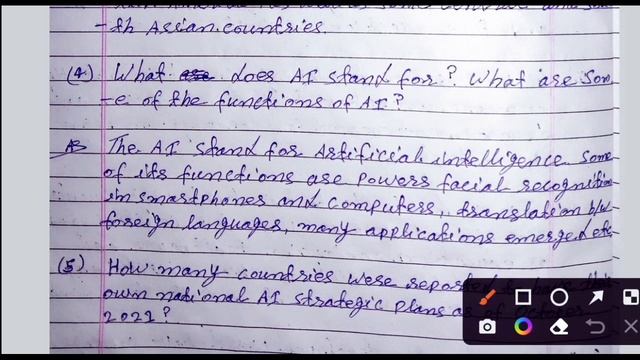 -th Asian countries.
(4) What does AI stand for? What are Som
-e of the functions of AI?
The AI stand for Artificial intelligence. Some
of its functions are Powers facial recognition
in smartphones and computers, translation b/w
foreign languages, many applications emerged etc
(5) How many countries were reported to have their
own national AI strategic plans as of October
2021?